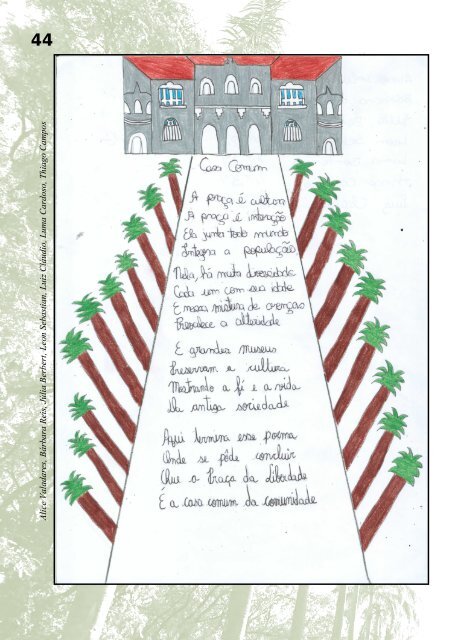 44
Casa Comum
A praça é cultura
A praça é interação
Ela junta todo mundo
Integra a população
Nela, há muita diversidade
Cada um com sua idade
E nessa mistura de crenças
Prevalece a alteridade
E grandes museus
Preservam a cultura
Mostrando a fé e a vida
Da antiga sociedade
Aqui termina esse poema
Onde se pôde concluir
Que a Praça da Liberdade
É a casa comum da comunidade
Alice Valadares, Bárbara Reis, Júlia Berbert, Leon Sebastian, Luiz Cláudio, Luma Cardoso, Thiago Campos